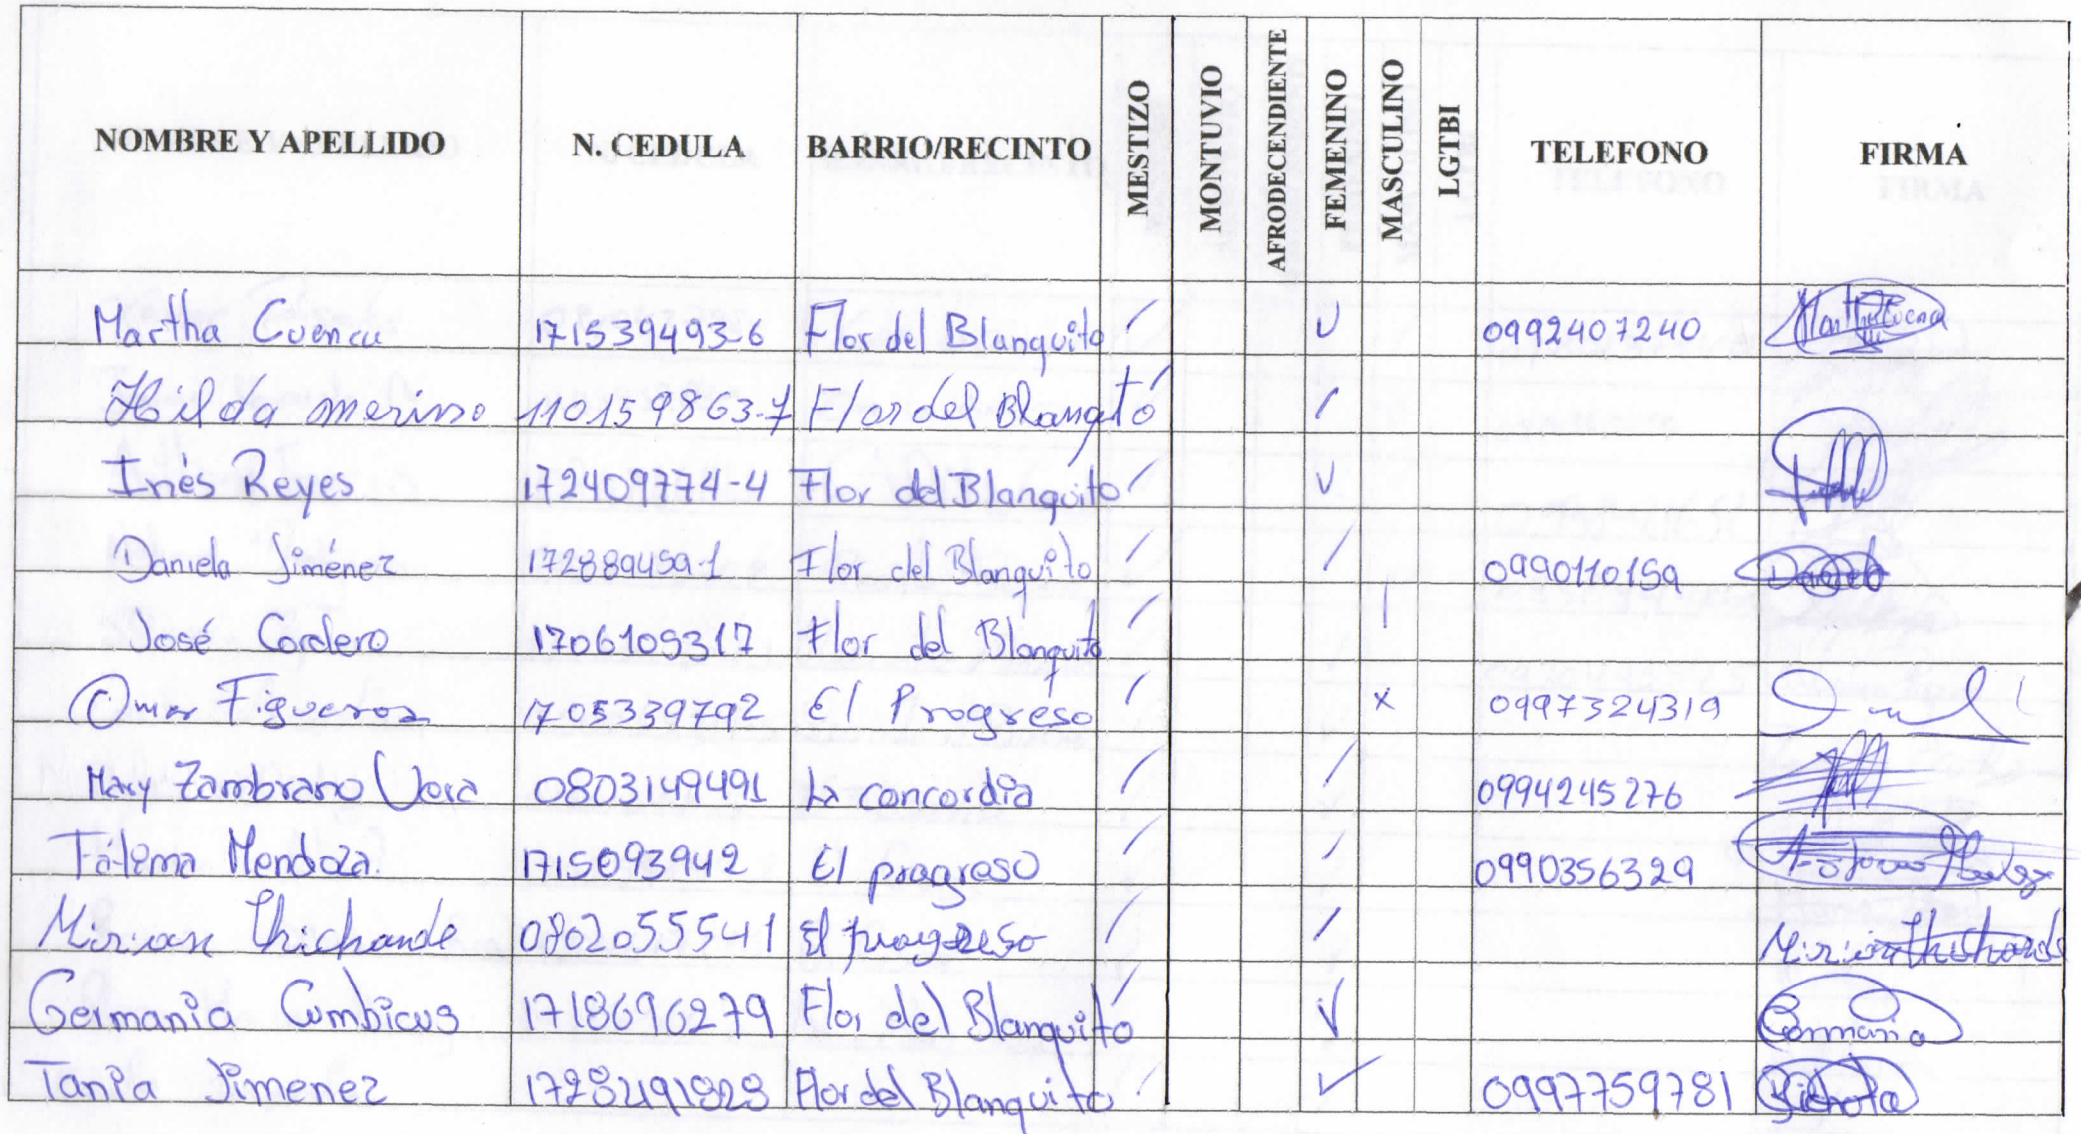 NOMBRE Y APELLIDO N. CEDULA BARRIO/RECINTO MESTIZO MONTUVIO AFRODECENDIENTE FEMENINO MASCULINO LGTBI TELEFONO FIRMA
Martha Cuenca 171539493-6 Flor del Blanquito / ✓ 0992407240 Martha Cuenca
Hilda merino 110159863-7 Flor del Blanqito / /
Inés Reyes 172409774-4 Flor del Blanquito / ✓
Daniela Jiménez 172889459-1 Flor del Blanquito / / 0990110159
José Cordero 1706109317 Flor del Blanquito / /
Omar Figueroa 1705339792 El Progreso / x 0997324319
Mary Zambrano Vera 0803149491 La concordia / / 0994245276
Fátima Mendoza. 1715093942 El progreso / / 0990356329
Mirian Chichande 0802055541 El progreso / / Mirian Chichande
Germania Cumbicus 1718696279 Flor del Blanquito / ✓ Germania
Tania Jimenez Flor del Blanquito / ✓ 0997759781